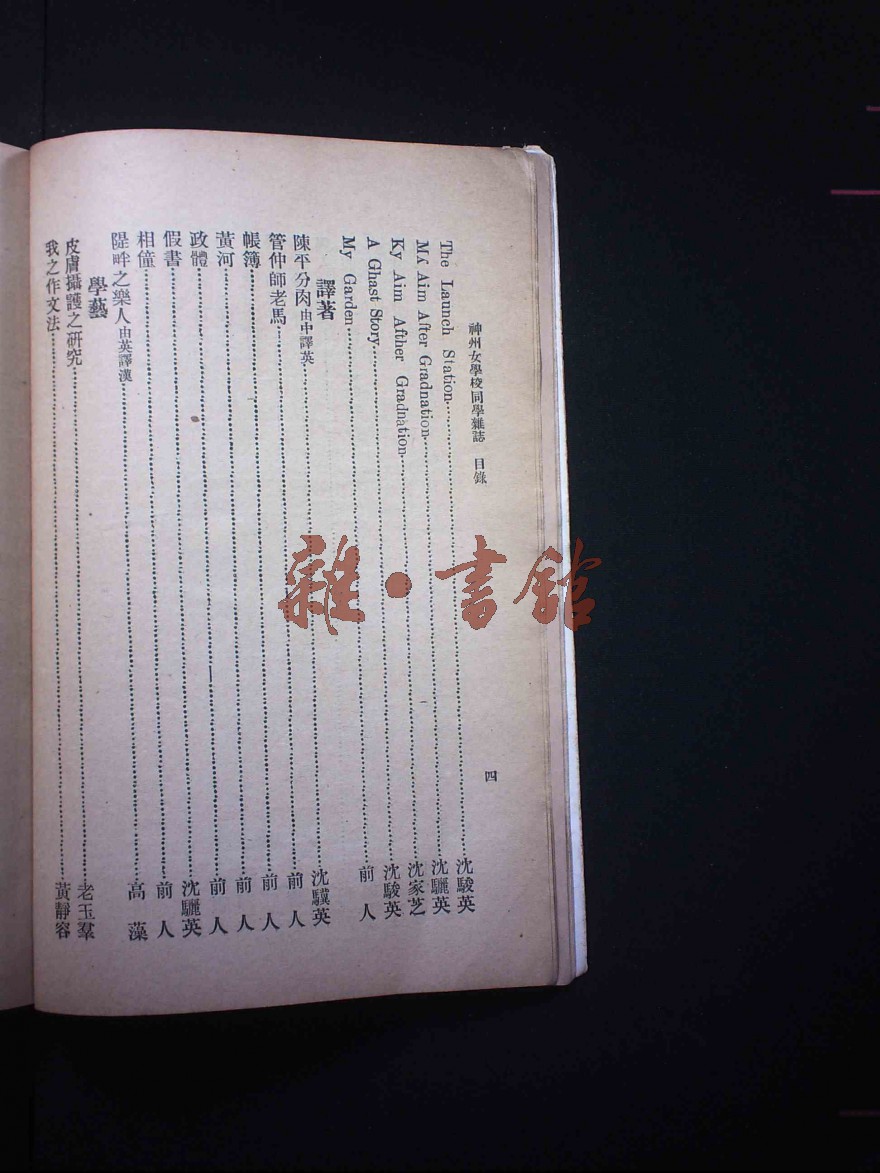 神州女學校同學雜誌 目錄 四
The Launch Station 沈駿英
Mʎ Aim After Gradnation 沈驪英
Ky Aim Afther Gradnation 沈家芝
A Ghast Story 沈駿英
My Garden 前人
譯著
陳平分肉由中譯英 沈驥英
管仲師老馬 前人
帳簿 前人
黃河 前人
政體 前人
假書 沈驪英
相僮 前人
隄畔之樂人由英譯漢 高藻
學藝
皮膚攝護之研究 老玉羣
我之作文法 黃靜容
雜·書館